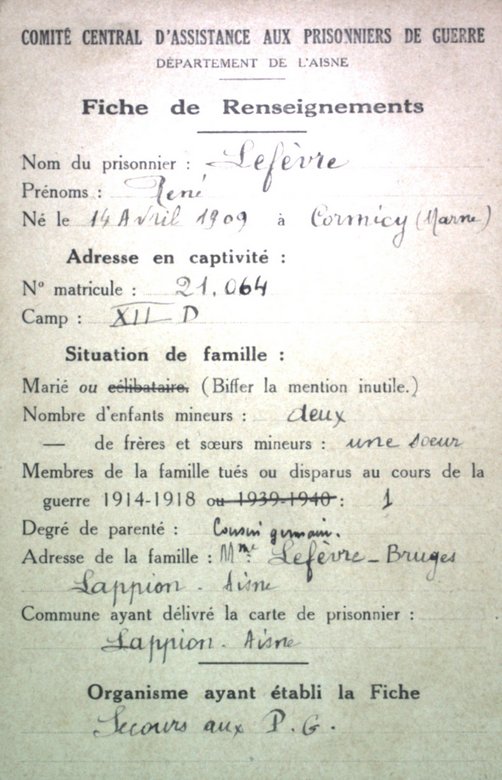 COMITÉ CENTRAL D'ASSISTANCE AUX PRISONNIERS DE GUERRE
DÉPARTEMENT DE L'AISNE
Fiche de Renseignements
Nom du prisonnier : Lefèvre
Prénoms : René
Né le 14 Avril 1909 à Cormicy (Marne)
Adresse en captivité :
N° matricule : 21.064
Camp : XII D
Situation de famille :
Marié ou célibataire. (Biffer la mention inutile.)
Nombre d'enfants mineurs : deux
— de frères et sœurs mineurs : une soeur
Membres de la famille tués ou disparus au cours de la
guerre 1914-1918 ou 1939-1940 : 1
Degré de parenté : Cousin germain.
Adresse de la famille : Mme Lefèvre - Bruges
Lappion - Aisne
Commune ayant délivré la carte de prisonnier :
Lappion - Aisne
Organisme ayant établi la Fiche
Secours aux P. G.